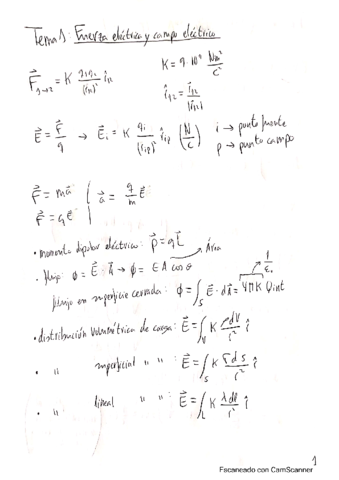 Tema 1: Fuerza eléctrica y campo eléctrico
F⃗₁→₂ = K q₁q₂/(r₁₂)² î₁₂ K = 9·10⁹ Nm²/C²
î₁₂ = r⃗₁₂/|r⃗₁₂|
E⃗ = F⃗/q → E⃗ᵢ = K qᵢ/(rᵢₚ)² îᵢₚ (N/C) i → punto fuente
p → punto campo
F⃗ = ma⃗ a⃗ = q/m E⃗
F⃗ = qE⃗
• momento dipolar eléctrico: p⃗ = qL⃗
Área
• flujo: ϕ = E⃗·A⃗ → ϕ = EA cosθ
1/ε₀
flujo en superficie cerrada: ϕ = ∫ₛ E⃗·dA⃗ = 4πK Qint
• distribución volumétrica de carga: E⃗ = ∫ᵥ K ρdV/r² î
• " superficial " " : E⃗ = ∫ₛ K σds/r² î
• " lineal " " : E⃗ = ∫_L K λdl/r² î
1
Escaneado con CamScanner